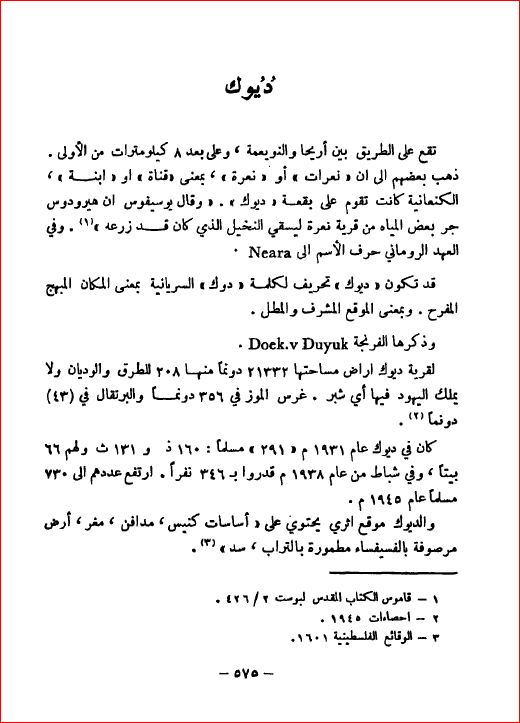 دُيُوك
تقع على الطريق بين أريحا والنويعمة ، وعلى بعد ٨ كيلومترات من الأولى .
ذهب بعضهم الى ان « نعرات » أو « نعرة » ، بمعنى « قناة » او « ابنة » ،
الكنعانية كانت تقوم على بقعة « ديوك » . « وقال يوسيفوس ان هيرودوس
جر بعض المياه من قرية نعرة ليسقي النخيل الذي كان قــد زرعه » (١) . وفي
العهد الروماني حرف الأسم الى Neara .
قد تكون « ديوك » تحريف لكلمة « دوك » السريانية بمعنى المكان المبهج
المفرح . وبمعنى الموقع المشرف والمطل .
وذكرها الفرنجة Doek.v Duyuk .
لقرية ديوك اراض مساحتها ٢١٣٣٢ دونماً منهـا ٢٠٨ للطرق والوديان ولا
يملك اليهود فيها أي شبر . غرس الموز في ٣٥٦ دونمــاً والبرتقال في (٤٣)
دونماً (٢) .
كان في ديوك عام ١٩٣١ م « ٢٩١ » مسلماً : ١٦٠ ذ و ١٣١ ث ولهم ٦٦
بيتاً ، وفي شباط من عام ١٩٣٨ م قدروا بـ ٣٤٦ نفراً . ارتفع عددهم الى ٧٣٠
مسلماً عام ١٩٤٥ م .
والديوك موقع اثري يحتوي على « أساسات كنيس ، مدافن ، مغر ، أرض
مرصوفة بالفسيفساء مطمورة بالتراب ، سد » (٣) .
١ – قاموس الكتاب المقدس لبوست ٢ / ٤٢٦ .
٢ – احصاءات ١٩٤٥ .
٣ – الوقائع الفلسطينية ١٦٠١.
– ٥٧٥ –